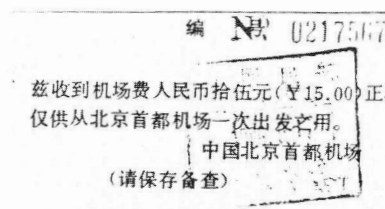 编 № 号 0217567
兹收到机场费人民币拾伍元(¥15.00)正
仅供从北京首都机场一次出发之用。
中国北京首都机场
(请保存备查)